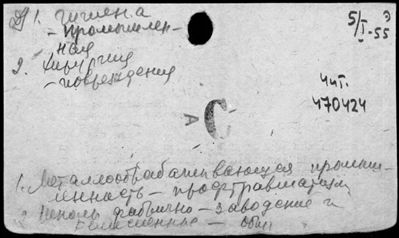 1. гигиена
5/I-55 э
- промышлен-
ная
2. Хирургия
- повреждения
чит.
470424
С
А
1. Металлообрабатывающая промыш-
ленность - профтравматизм
2. фабрично - заводские и
- общ